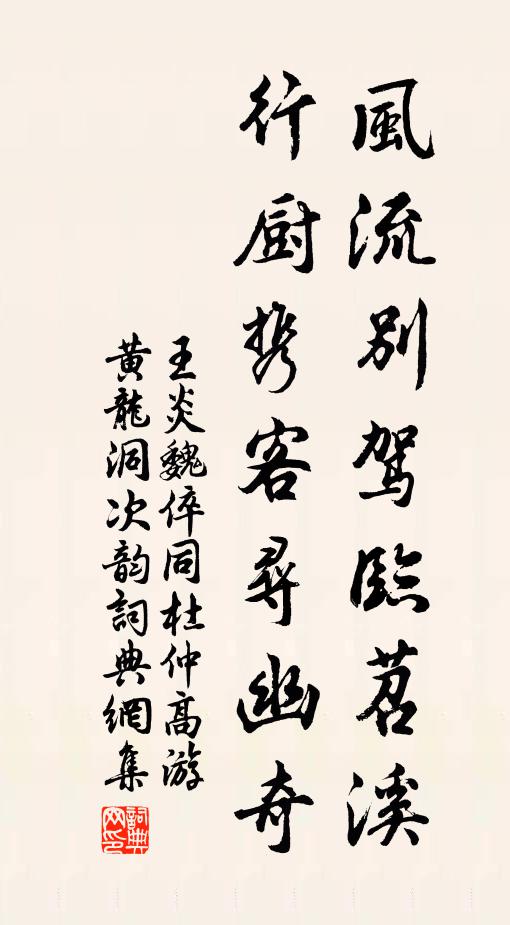 風流別駕臨苕溪
行厨携客尋幽奇
王炎魏倅同杜仲高游
黄龍洞次韵詞典網集
詞典網印